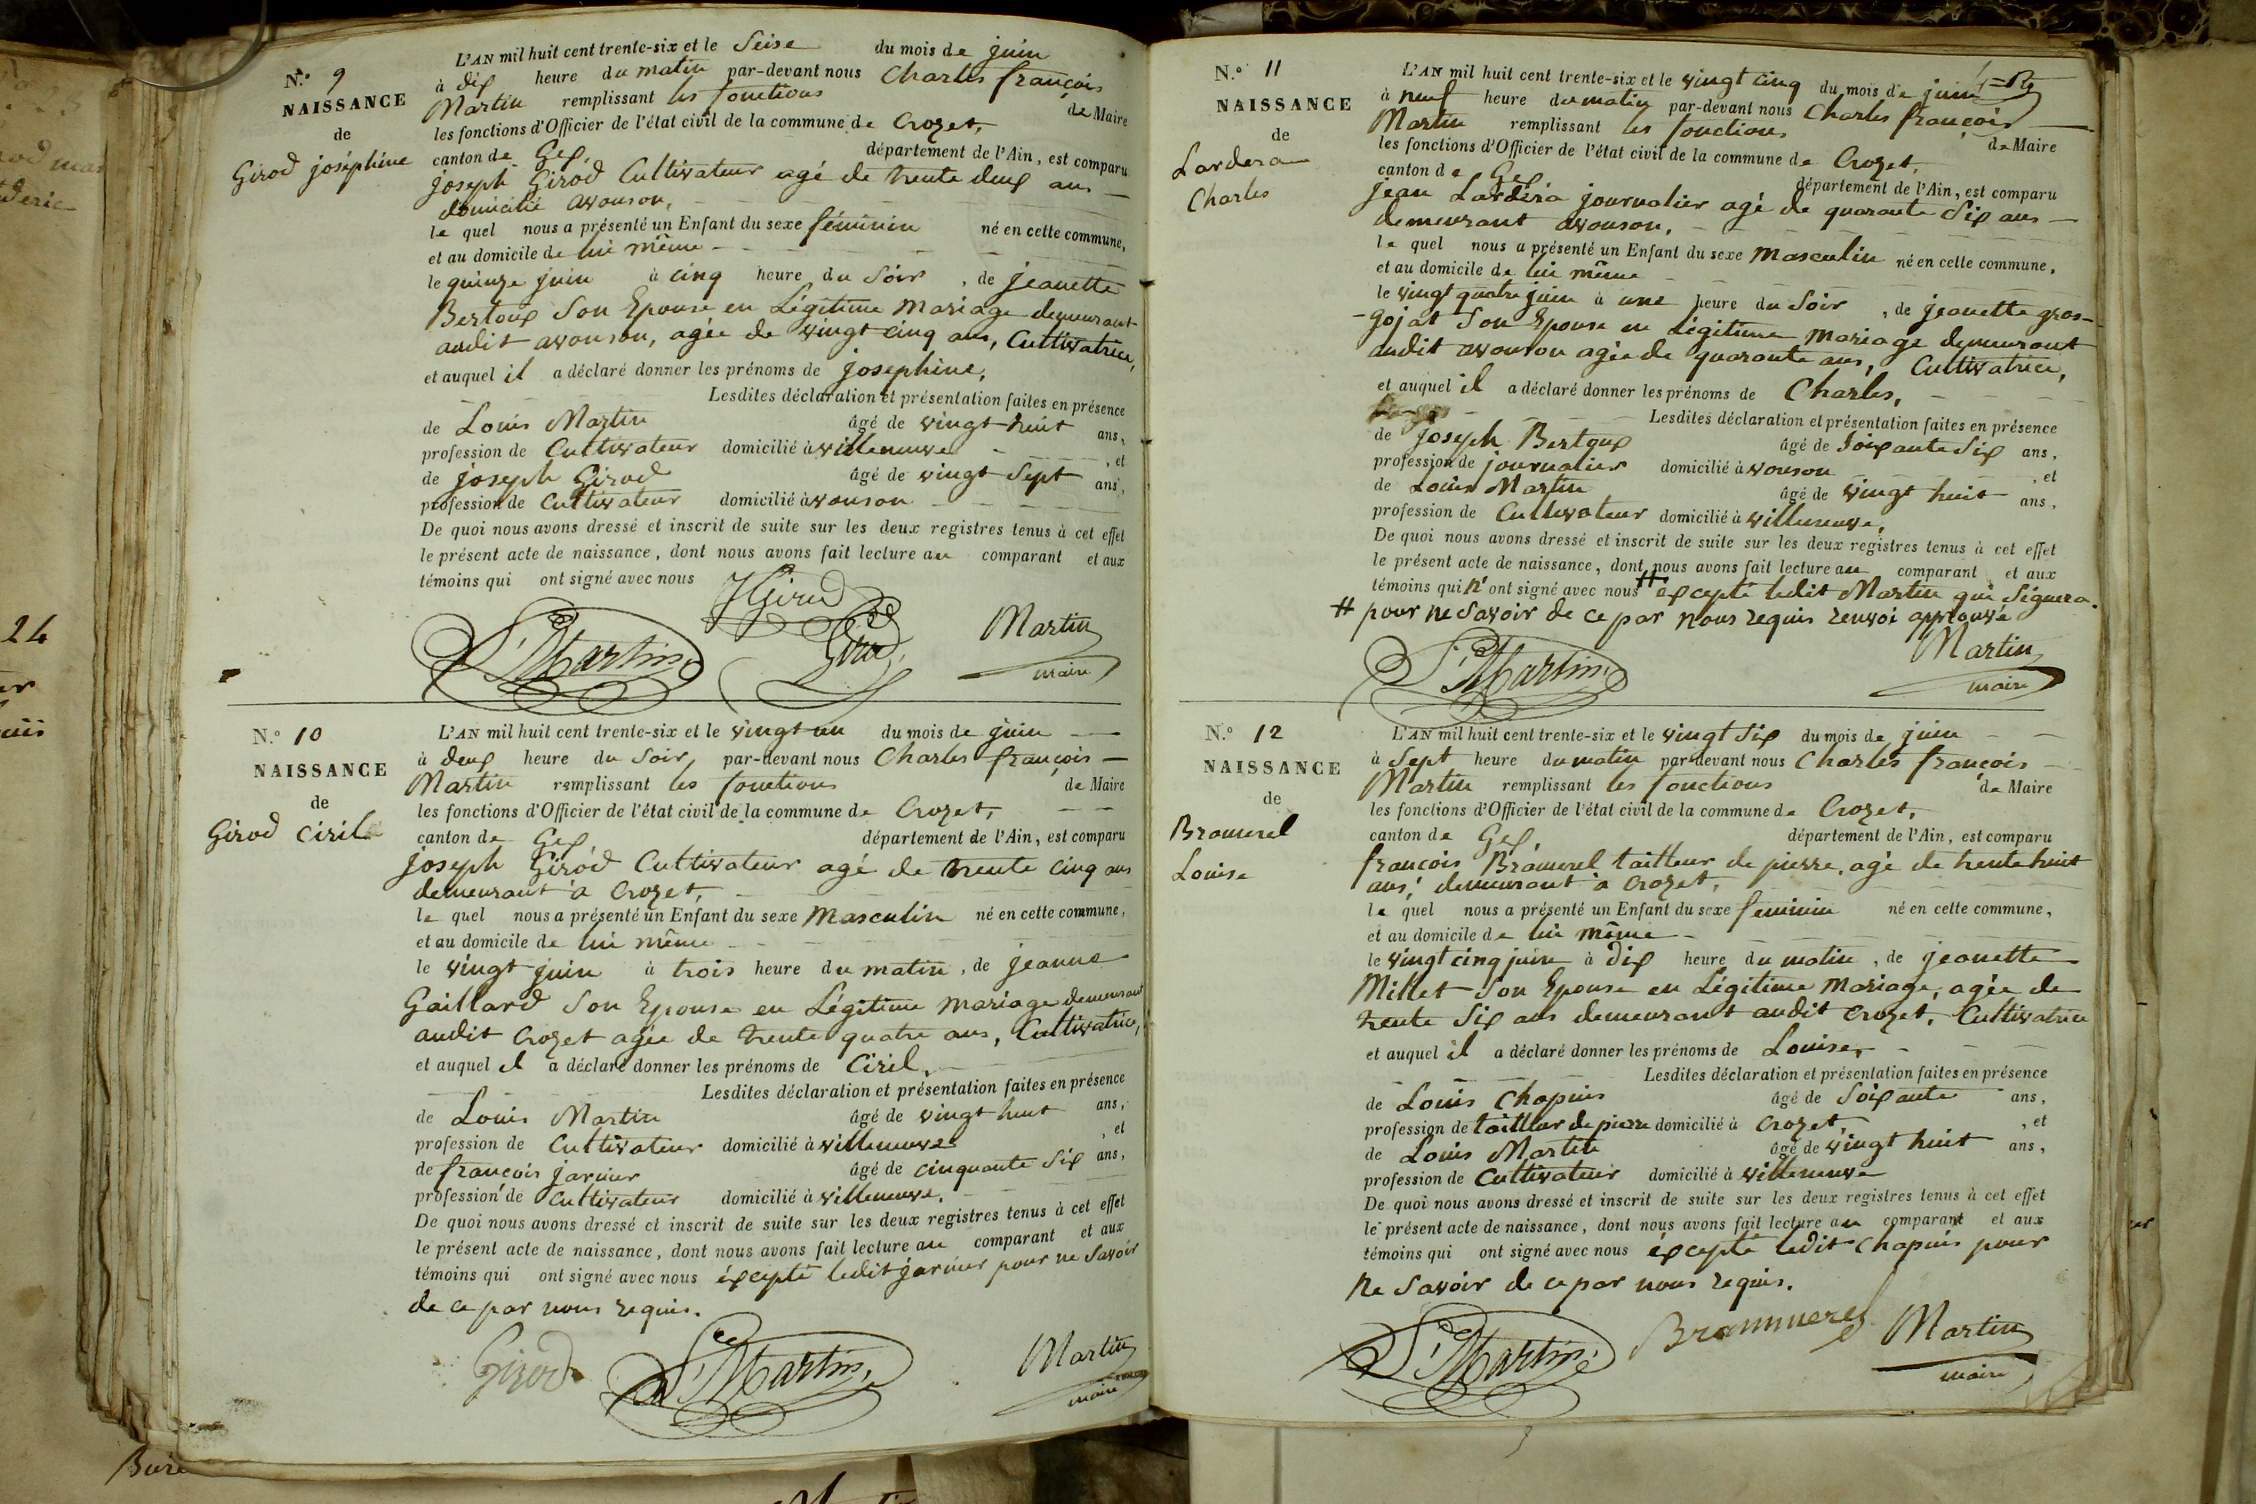 N.° 9
NAISSANCE
de
Girod joséphine
L'AN mil huit cent trente-six et le Seise du mois de juin
à dix heure du matin par-devant nous Charles françois
Martin remplissant les fonctions de Maire
les fonctions d'Officier de l'état civil de la commune de Crozet,
canton de Gex, département de l'Ain, est comparu
joseph Girod Cultivateur agé de trente deux ans
domicilié avouson,
le quel nous a présenté un Enfant du sexe féminin né en cette commune,
et au domicile de lui même
le quinze juin à cinq heure du Soir, de jeanette
Bertoux Son Epouse en Légitime Mariage demeurant
audit avouson, agée de vingt cinq ans, Cultivatrice,
et auquel il a déclaré donner les prénoms de josephine,
Lesdites déclaration et présentation faites en présence
de Louis Martin âgé de vingt huit ans,
profession de Cultivateur domicilié à villeneuve, et
de joseph Girod âgé de vingt Sept ans,
profession de Cultivateur domicilié àvouson
De quoi nous avons dressé et inscrit de suite sur les deux registres tenus à cet effet
le présent acte de naissance, dont nous avons fait lecture au comparant et aux
témoins qui ont signé avec nous
JGirod
L. Martin Girod Martin
maire
N.° 10
NAISSANCE
de
Girod Ciril
L'AN mil huit cent trente-six et le vingt un du mois de juin
à deux heure du Soir, par-devant nous Charles françois
Martin remplissant les fonctions de Maire
les fonctions d'Officier de l'état civil de la commune de Crozet,
canton de Gex, département de l'Ain, est comparu
joseph Girod Cultivateur agé de trente cinq ans
demeurant à Crozet,
le quel nous a présenté un Enfant du sexe Masculin né en cette commune,
et au domicile de lui même
le vingt juin à trois heure du matin, de jeanne
Gaillard Son Epouse en Légitime Mariage demeurant
audit Crozet agée de trente quatre ans, Cultivatrice,
et auquel il a déclaré donner les prénoms de Ciril,
Lesdites déclaration et présentation faites en présence
de Louis Martin âgé de vingt huit ans,
profession de Cultivateur domicilié à villeneuve, et
de françois jarnier âgé de cinquante Six ans,
profession de Cultivateur domicilié à villeneuve,
De quoi nous avons dressé et inscrit de suite sur les deux registres tenus à cet effet
le présent acte de naissance, dont nous avons fait lecture au comparant et aux
témoins qui ont signé avec nous éxcepté ledit jarnier pour ne Savoir
de ce par nous requis.
Girod L. Martin Martin
maire
N.° 11
NAISSANCE
de
Lardera
Charles
L'AN mil huit cent trente-six et le vingt cinq du mois de juin
à neuf heure du matin par-devant nous Charles françois
Martin remplissant les fonctions de Maire
les fonctions d'Officier de l'état civil de la commune de Crozet,
canton de Gex, département de l'Ain, est comparu
jean Lardera journalier agé de quarante Six ans
demeurant avouson,
le quel nous a présenté un Enfant du sexe Masculin né en cette commune,
et au domicile de lui même
le vingt quatre juin à une heure du Soir, de jeanette gros-
-gojat Son Epouse en Légitime Mariage demeurant
audit avouson agée de quarante ans, Cultivatrice,
et auquel il a déclaré donner les prénoms de Charles,
Lesdites déclaration et présentation faites en présence
de joseph Bertoux âgé de Soixante Six ans,
profession de journalier domicilié àvouson, et
de Louis Martin âgé de vingt huit ans,
profession de Cultivateur domicilié à villeneuve,
De quoi nous avons dressé et inscrit de suite sur les deux registres tenus à cet effet
le présent acte de naissance, dont nous avons fait lecture au comparant et aux
témoins qui n'ont signé avec nous # éxcepté ledit Martin qui Signera.
# pour ne Savoir de ce par nous requis renvoi approuvé
L. Martin Martin
maire
N.° 12
NAISSANCE
de
Bramerel
Louise
L'AN mil huit cent trente-six et le vingt Six du mois de juin
à Sept heure du matin par-devant nous Charles françois
Martin remplissant les fonctions de Maire
les fonctions d'Officier de l'état civil de la commune de Crozet,
canton de Gex, département de l'Ain, est comparu
françois Bramerel tailleur de pierre, agé de trente huit
ans, demeurant à Crozet,
le quel nous a présenté un Enfant du sexe feminin né en cette commune,
et au domicile de lui même
le vingt cinq juin à dix heure du matin, de jeanette
Millet Son Epouse en Légitime Mariage, agée de
trente Six ans demeurant audit Crozet, Cultivatrice
et auquel il a déclaré donner les prénoms de Louise,
Lesdites déclaration et présentation faites en présence
de Louis Chapuis âgé de Soixante ans,
profession de tailleur de pierre domicilié à Crozet, et
de Louis Martin âgé de vingt huit ans,
profession de Cultivateur domicilié à villeneuve
De quoi nous avons dressé et inscrit de suite sur les deux registres tenus à cet effet
le présent acte de naissance, dont nous avons fait lecture au comparant et aux
témoins qui ont signé avec nous éxcepté ledit Chapuis pour
ne Savoir de ce par nous requis.
L. Martin Brammerel Martin
maire